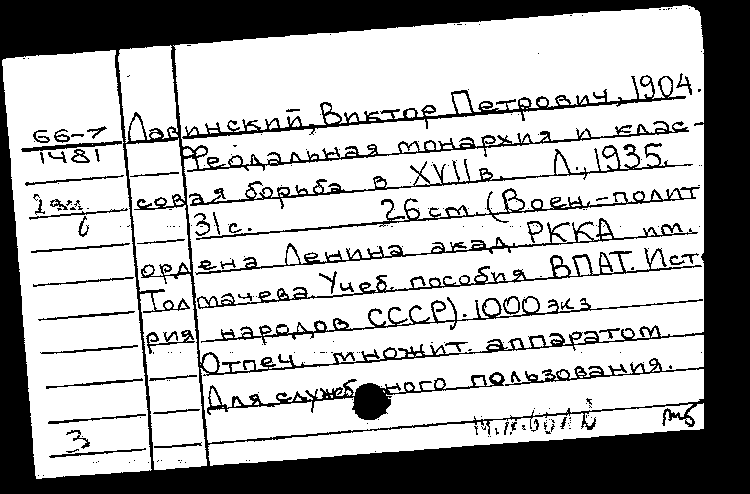 66-7
1481
2 экз
6
Лавинский, Виктор Петрович, 1904.
Феодальная монархия и клас-
совая борьба в XVII в. Л., 1935.
31 с. 26 см. (Воен.-полит
ордена Ленина акад. РККА им.
Толмачева. Учеб. пособия ВПАТ. Исто
рия народов СССР). 1000 экз
Отпеч. множит. аппаратом
Для служебного пользования.
3